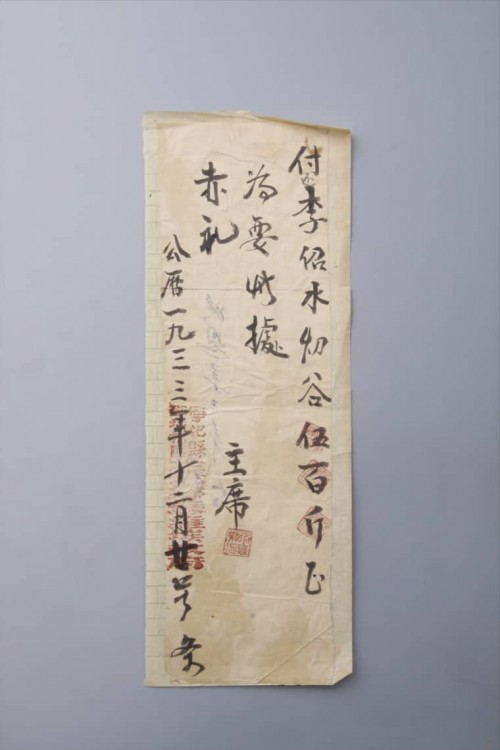 付李绍水礽谷伍百斤正
為要此據
赤礼
主席
公厯一九三三年十二月廿号条